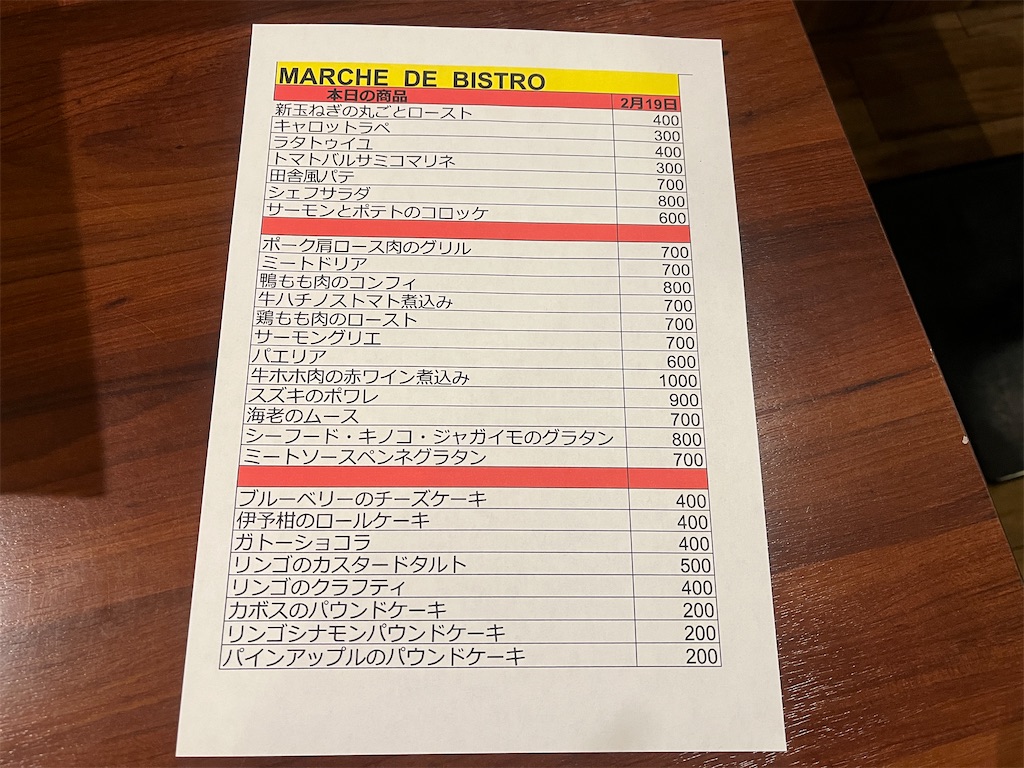 MARCHE DE BISTRO
本日の商品 2月19日
新玉ねぎの丸ごとロースト 400
キャロットラペ 300
ラタトゥイユ 400
トマトバルサミコマリネ 300
田舎風パテ 700
シェフサラダ 800
サーモンとポテトのコロッケ 600
ポーク肩ロース肉のグリル 700
ミートドリア 700
鴨もも肉のコンフィ 800
牛ハチノストマト煮込み 700
鶏もも肉のロースト 700
サーモングリエ 700
パエリア 600
牛ホホ肉の赤ワイン煮込み 1000
スズキのポワレ 900
海老のムース 700
シーフード・キノコ・ジャガイモのグラタン 800
ミートソースペンネグラタン 700
ブルーベリーのチーズケーキ 400
伊予柑のロールケーキ 400
ガトーショコラ 400
リンゴのカスタードタルト 500
リンゴのクラフティ 400
カボスのパウンドケーキ 200
リンゴシナモンパウンドケーキ 200
パインアップルのパウンドケーキ 200